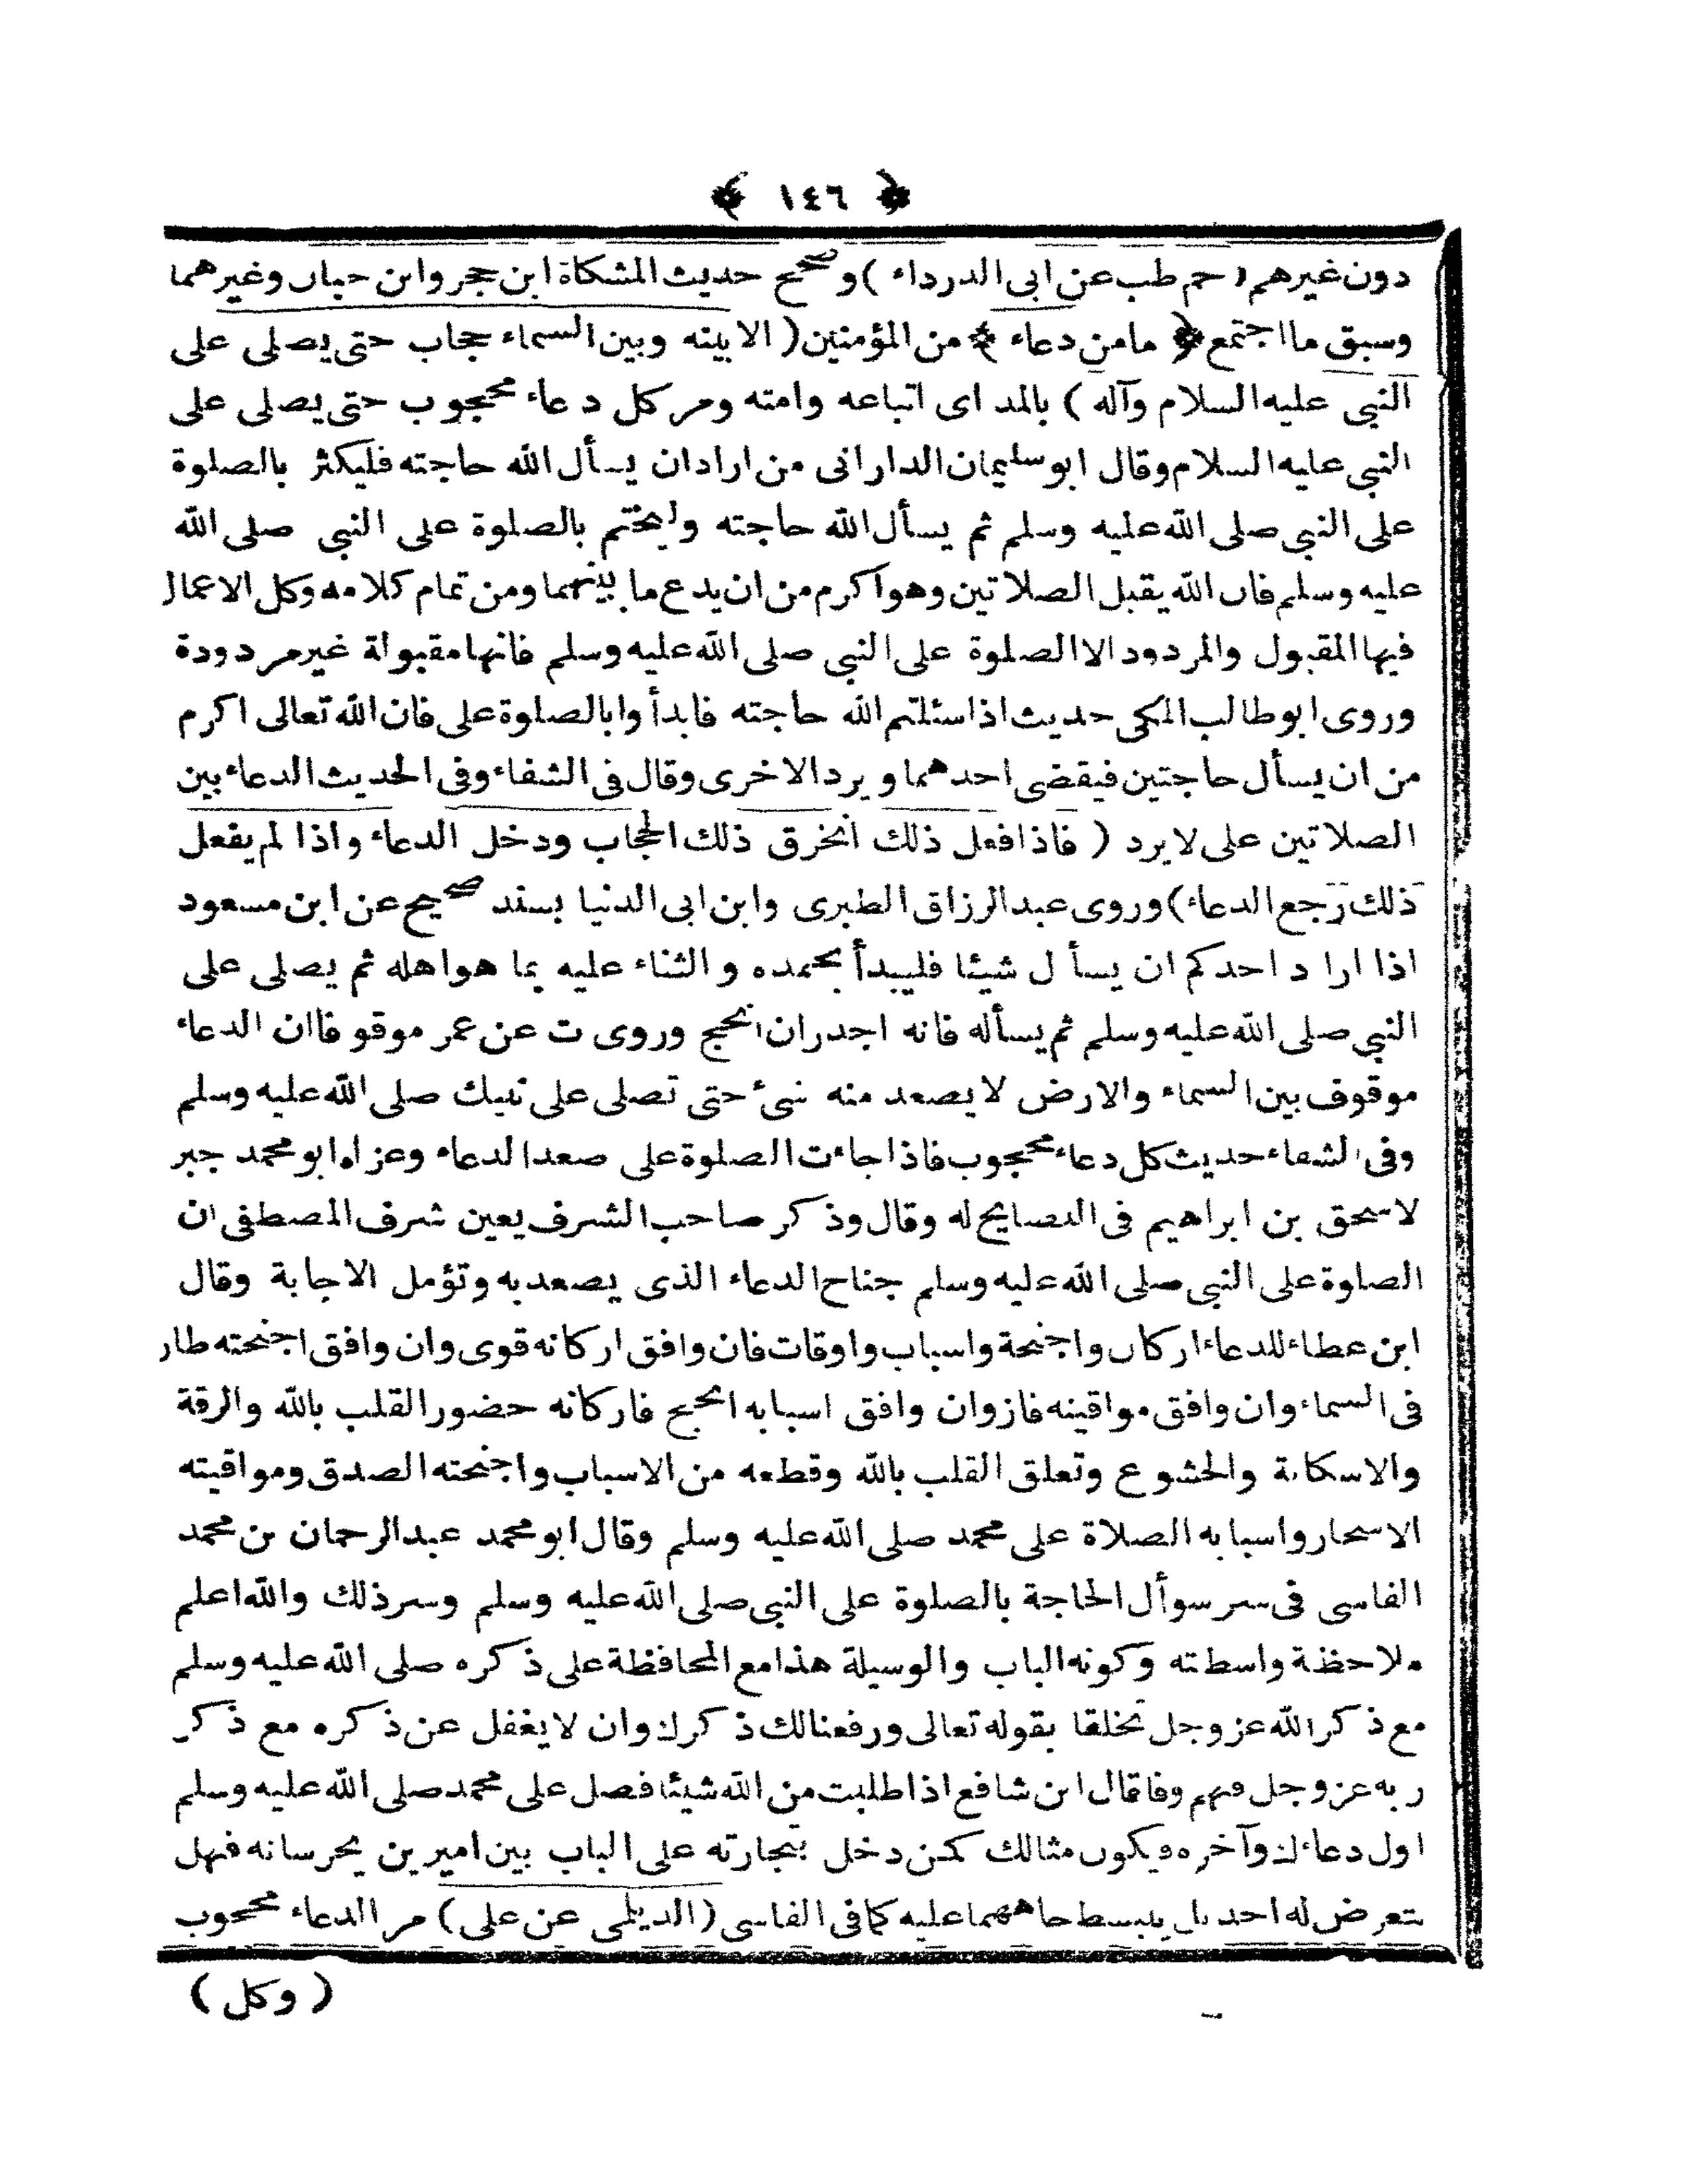 ﴿ ١٤٦ ﴾
دون غيرهم ( حم طب عن ابى الدرداء ) وصحح حديث المشكاة ابن حجر وابن حبان وغيرهما
وسبق ما اجتمع ﴿ مامن دعاء ﴾ من المؤمنين ( الابينه وبين السماء حجاب حتى يصلى على
النبى عليه السلام وآله ) بالمد اى اتباعه وامته ومر كل دعاء محجوب حتى يصلى على
النبى عليه السلام وقال ابو سليمان الدارانى من اراد ان يسأل الله حاجته فليكثر بالصلوة
على النبى صلى الله عليه وسلم ثم يسأل الله حاجته وليختم بالصلوة على النبى صلى الله
عليه وسلم فان الله يقبل الصلاتين وهو اكرم من ان يدع ما بينهما ومن تمام كلامه وكل الاعمال
فيها المقبول والمردود الا الصلوة على النبى صلى الله عليه وسلم فانها مقبولة غير مردودة
وروى ابو طالب المكى حديث اذا سئلتم الله حاجته فابدأوا بالصلوة على فان الله تعالى اكرم
من ان يسأل حاجتين فيقضى احدهما ويرد الاخرى وقال فى الشفاء وفى الحديث الدعاء بين
الصلاتين على لا يرد ( فاذا فعل ذلك انخرق ذلك الحجاب ودخل الدعاء واذا لم يفعل
ذلك رجع الدعاء ) وروى عبد الرزاق الطبرى وابن ابى الدنيا بسند صحيح عن ابن مسعود
اذا اراد احدكم ان يسأل شيئا فليبدأ بحمده والثناء عليه بما هو اهله ثم يصلى على
النبى صلى الله عليه وسلم ثم يسأله فانه اجدر ان انجح وروى ت عن عمر موقوفا ان الدعاء
موقوف بين السماء والارض لا يصعد منه شئ حتى تصلى على نبيك صلى الله عليه وسلم
وفى الشفاء حديث كل دعاء محجوب فاذا جاءت الصلوة على صعد الدعاء وعزاه ابو محمد جبر
لاسحق بن ابراهيم فى النصايح له وقال وذكر صاحب الشرف يعين شرف المصطفى ان
الصلوة على النبى صلى الله عليه وسلم جناح الدعاء الذى يصعد به وتؤمل الاجابة وقال
ابن عطاء للدعاء اركان واجنحة واسباب واوقات فان وافق اركانه قوى وان وافق اجنحته طار
فى السماء وان وافق مواقيته فاز وان وافق اسبابه انجح فاركانه حضور القلب بالله والرقة
والاسكانة والخشوع وتعلق القلب بالله وقطعه من الاسباب واجنحته الصدق ومواقيته
الاسحار واسبابه الصلاة على محمد صلى الله عليه وسلم وقال ابو محمد عبد الرحمان بن محمد
الفاسى فى سر سوأل الحاجة بالصلوة على النبى صلى الله عليه وسلم وسر ذلك والله اعلم
ملاحظة واسطته وكونه الباب والوسيلة هذا مع المحافظة على ذكره صلى الله عليه وسلم
مع ذكر الله عز وجل تخلقا بقوله تعالى ورفعنا لك ذكرك وان لا يغفل عن ذكره مع ذكر
ربه عز وجل قال ابن شافع اذا طلبت من الله شيئا فصل على محمد صلى الله عليه وسلم
اول دعائك وآخره فيكون مثالك كمن دخل بتجارته على الباب بين اميرين يحرسانه فهل
يتعرض له احد بل ينبسط جاههما عليه كما فى الفاسى ( الديلمى عن على ) مر الدعاء محجوب
( وكل )